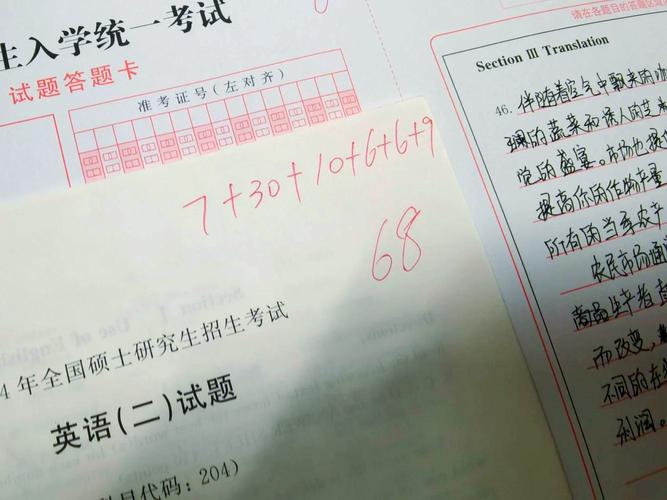 生入学统一考试
试题答题卡
准考证号(左对齐)
7+30+10+6+6+9
68
4年全国硕士研究生招生考试
英语(二)试题
代码:204)
请在各题目的答题区域
Section III Translation
46.伴随着空气中飘来的
的蔬菜和诱人的
的盛宴。市场也
提高你的作物产量
所有的当季农产
农民市场通
商品生产者
而改变,
不同的在
利润。